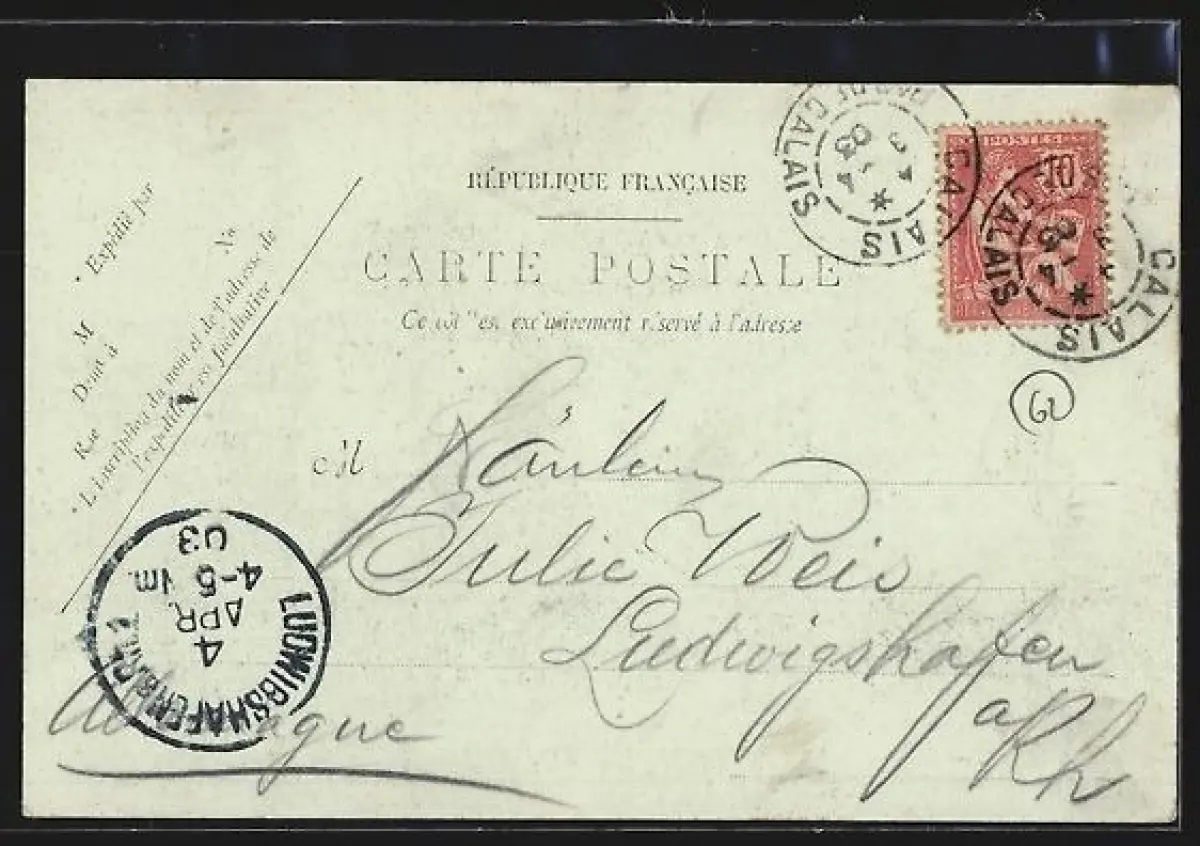 RÉPUBLIQUE FRANÇAISE
CARTE POSTALE
Ce côté est exclusivement réservé à l'adresse
Expédié par
M
Demt à
Rue
No
L'inscription du nom et de l'adresse de
l'expéditeur est facultative
POSTES
10
CALAIS
PAS DE CALAIS
3
4
03
CALAIS
CALAIS
3
4
03
62
M
Fräulein
Julie Weis
Ludwigshafen
a Rh
Allemagne
LUDWIGSHAFEN
4
APR.
4-5 Nm.
03